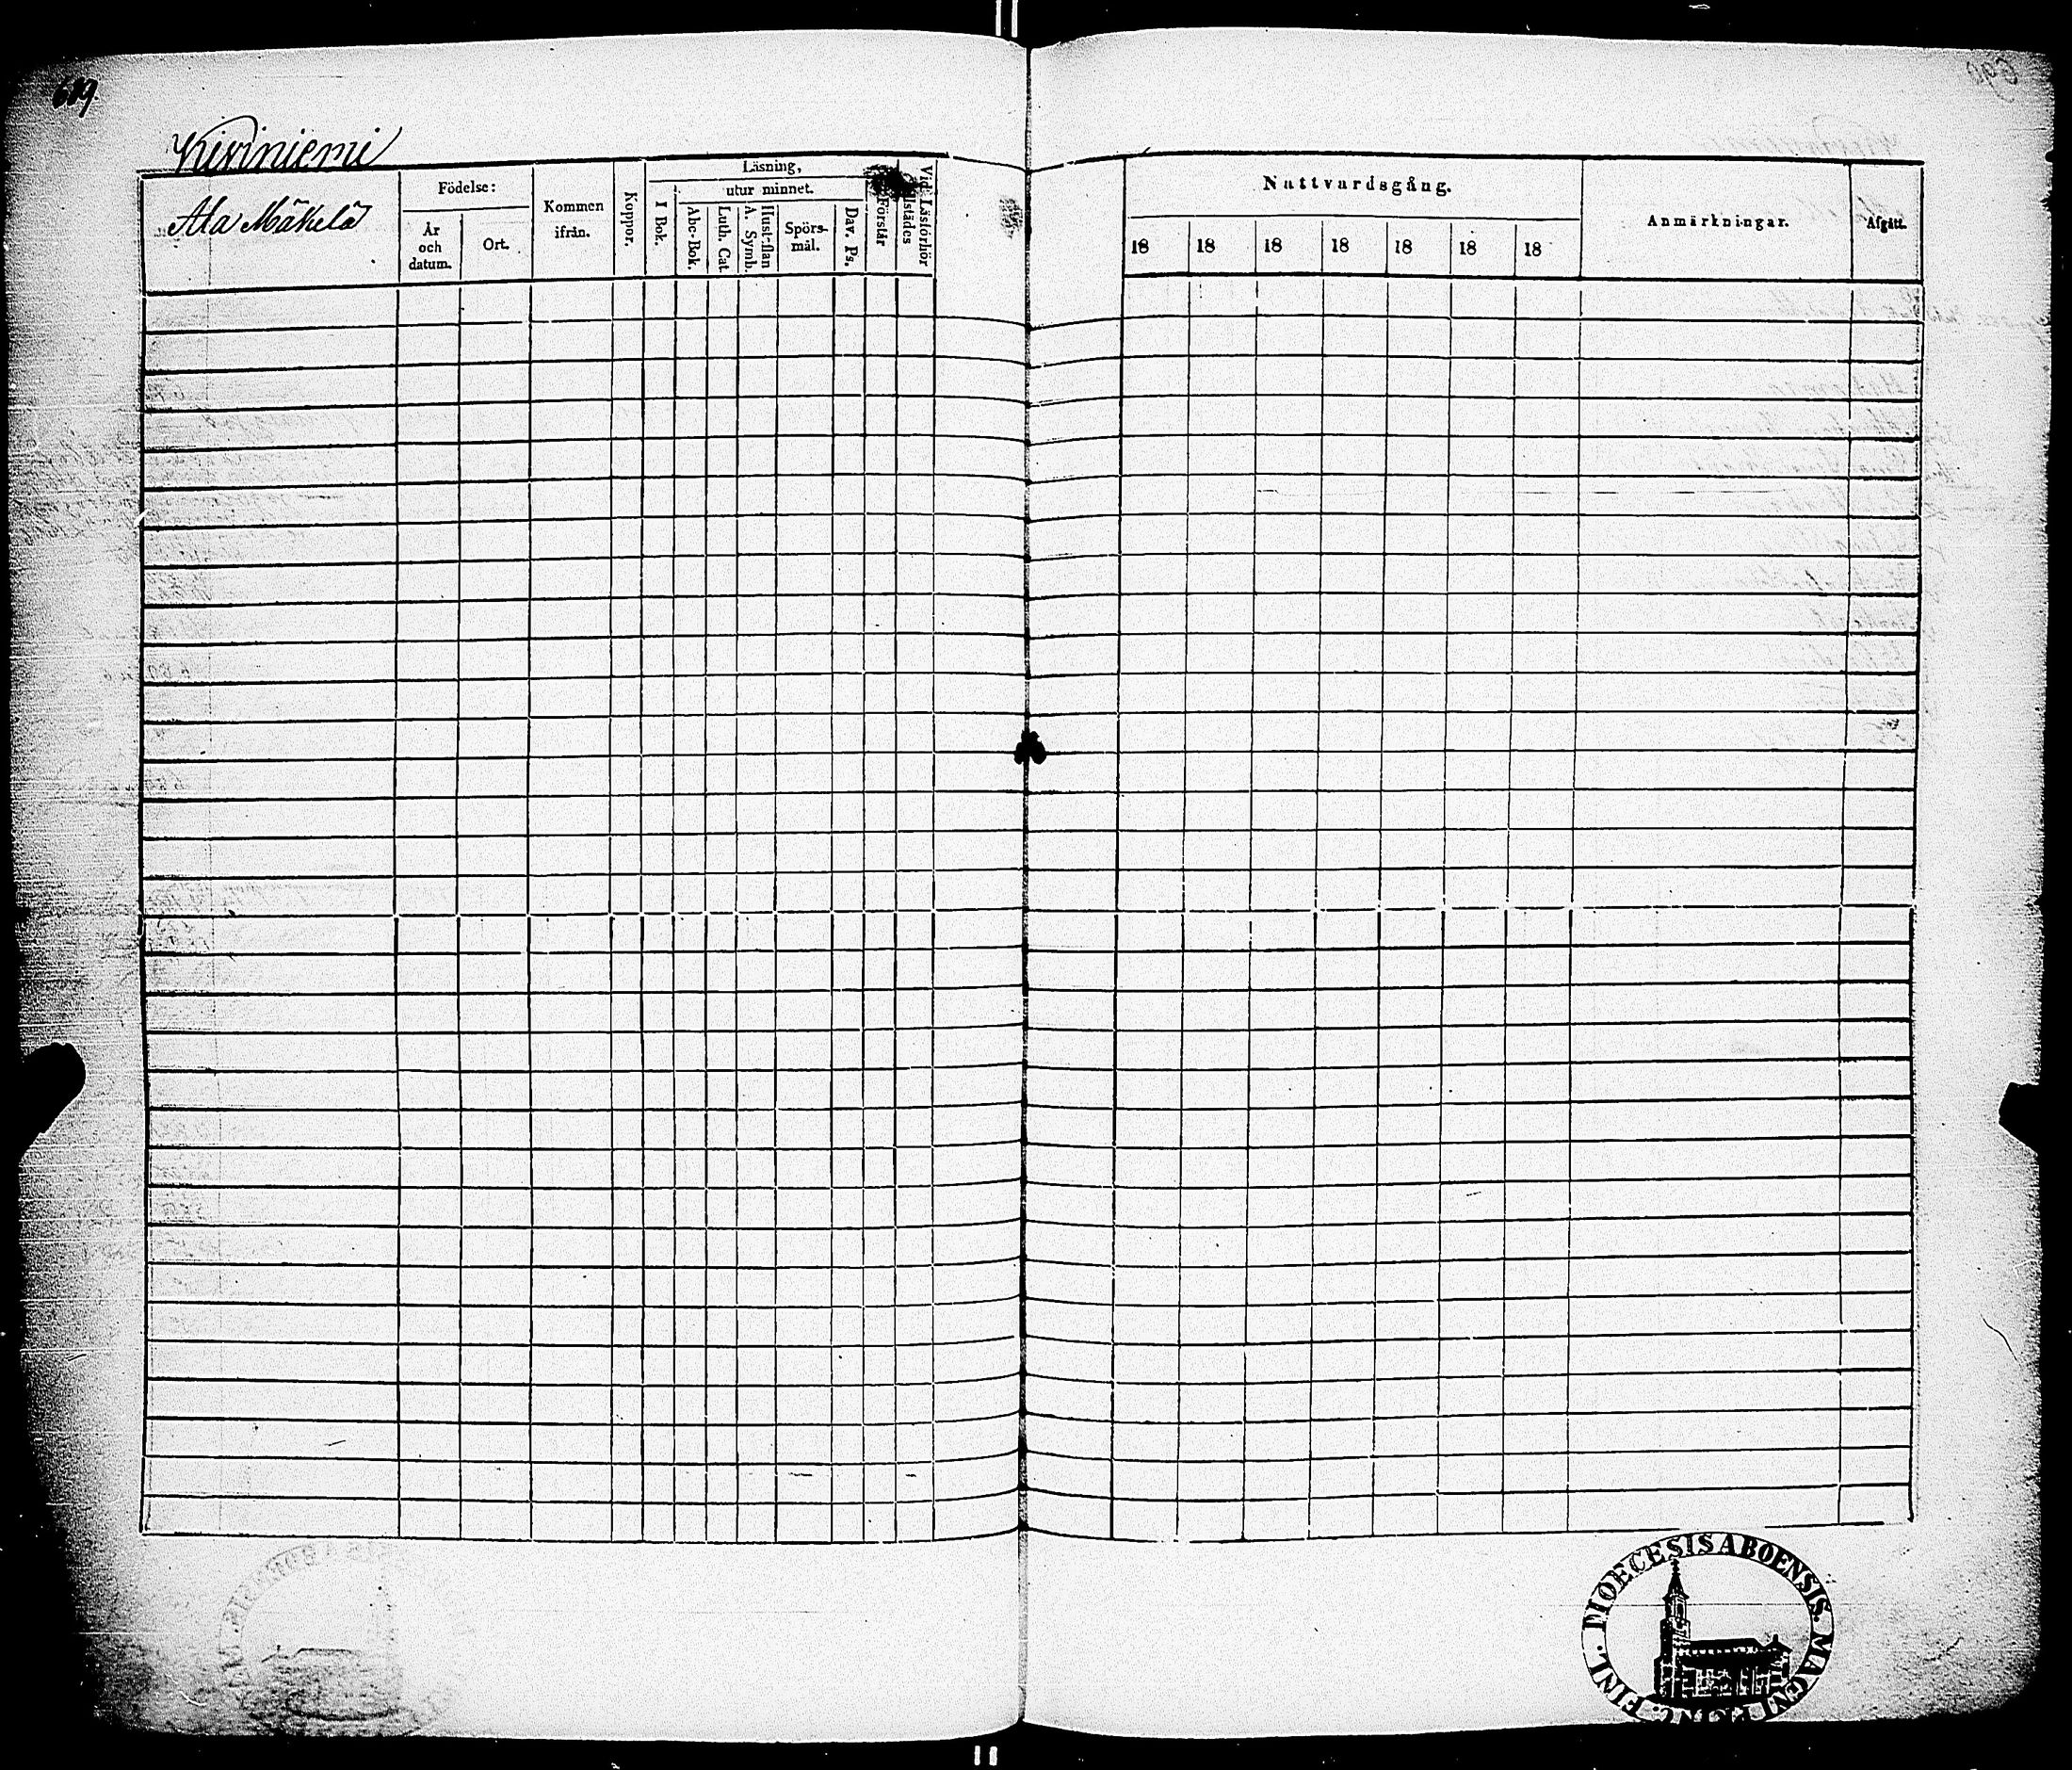 689.
Kiviniemi
Ala Mäkelä
Födelse:
År
och
datum.
Ort.
Kommen
ifrån.
Koppor.
Läsning,
utur minnet.
I Bok.
Abc-Bok.
Luth. Cat.
Hust-flan
A. Symb.
Spörs-
mål.
Dav. Ps.
Förstår
Vid Läsförhör
Nattvardsgång.
18 18 18 18 18 18 18
Anmärkningar.
Afgått.
DIOECESIS ABOENSIS. MAGNI PRINC. FINL.